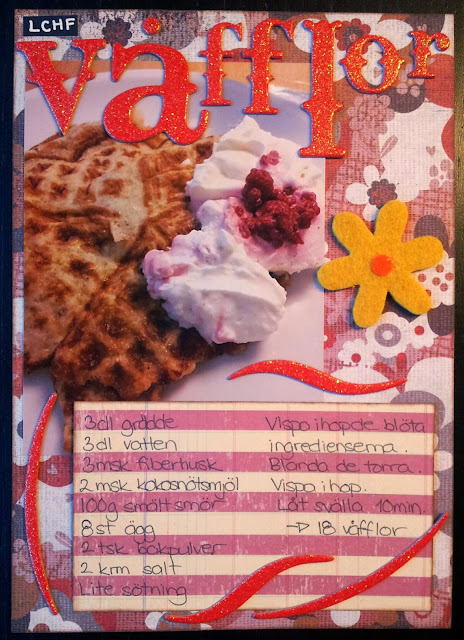 LCHF
våfflor
3dl grädde
3dl vatten
3msk fiberhusk
2 msk kokosnötsmjöl
100g smält smör
8 st ägg
2 tsk bakpulver
2 krm salt
Lite sötning
Vispa ihop de blöta
ingredienserna.
Blanda de torra.
Vispa ihop.
Låt svälla 10min.
→ 18 våfflor